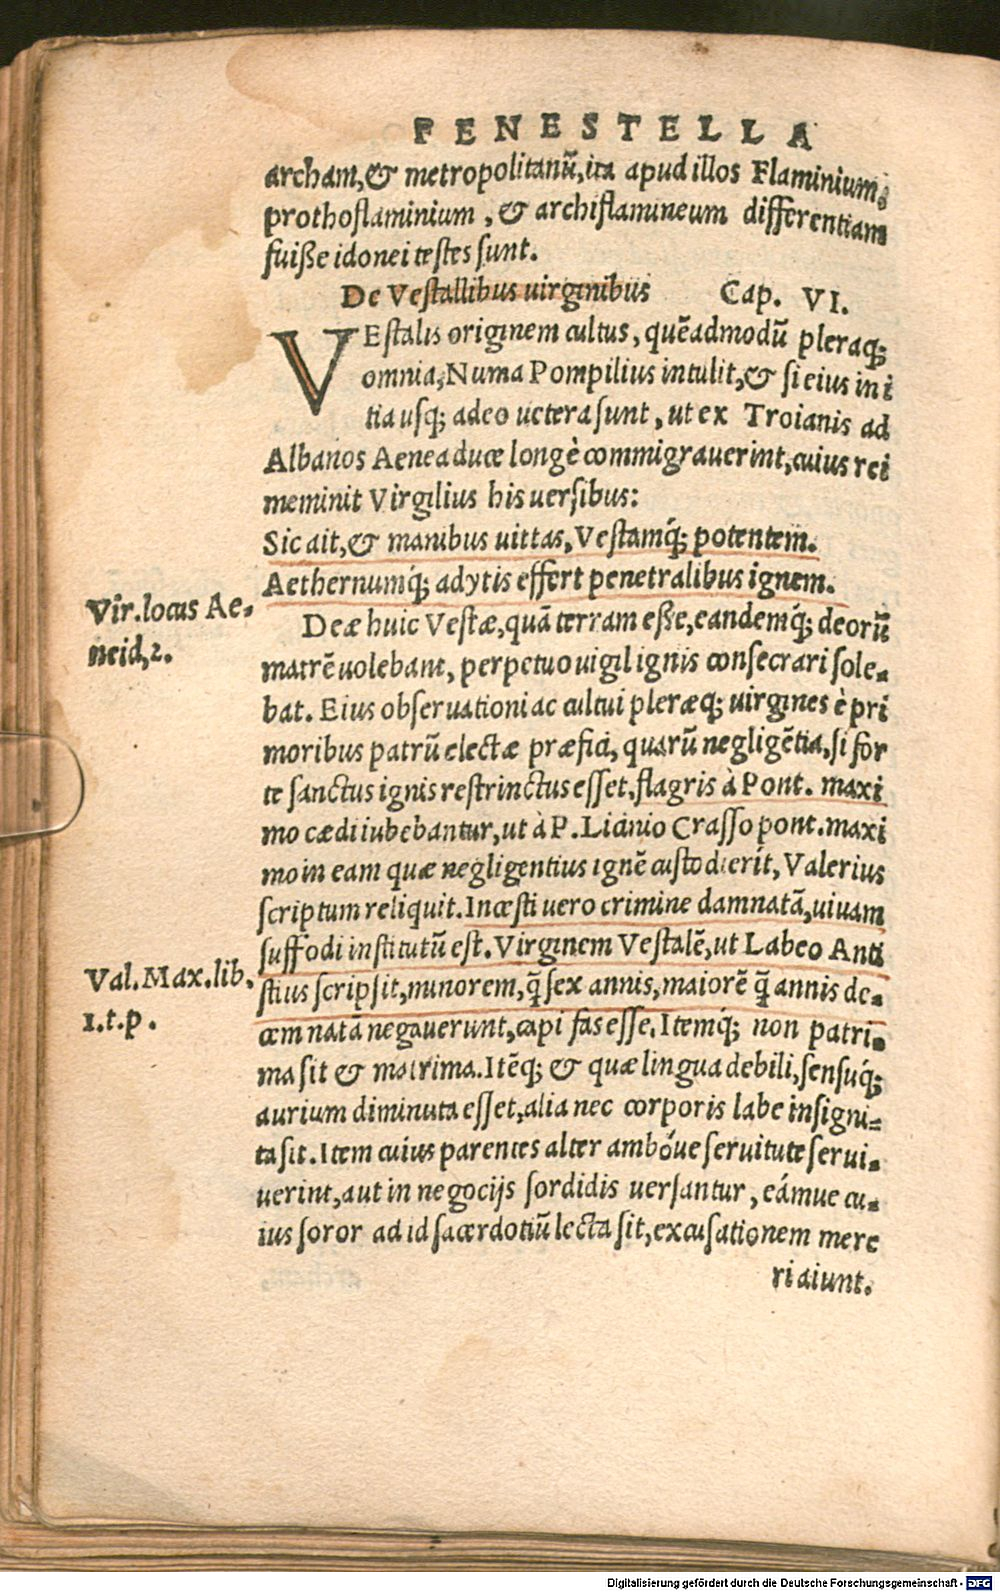 FENESTELLA
archam,& metropolitanũ,ita apud illos Flaminium,
prothoflaminium , & archiflamineum differentiam
fuiſſe idonei teſtes ſunt.
De Veſtallibus uirginibus Cap. VI.
VEſtalis originem cultus, quẽadmodũ pleraq;
omnia, Numa Pompilius intulit,& ſi eius ini
tia uſq; adeo uetera ſunt, ut ex Troianis ad
Albanos Aenea duce longè commigrauerint,cuius rei
meminit Virgilius his uerſibus:
Sic ait,& manibus uittas, Veſtamq́; potentem.
Aethernumq́; adytis effert penetralibus ignem.
Vir.locus Ae-
neid,2.
Deæ huic Veſtæ,quã terram eſſe,eandemq́; deorũ
matrẽ uolebant, perpetuo uigil ignis conſecrari ſole-
bat. Eius obſeruationi ac cultui pleræq; uirgines è pri
moribus patrũ electæ præfici, quarũ negligẽtia,ſi for
te ſanctus ignis reſtrinctus eſſet,flagris à Pont. maxi
mo cædi iubebantur,ut à P. Licinio Craſſo pont.maxi
mo in eam quæ negligentius ignẽ cuſtodierit, Valerius
ſcriptum reliquit.Inceſti uero crimine damnatã,uiuam
ſuffodi inſtitutũ eſt. Virginem Veſtalẽ,ut Labeo Anti
Val.Max.lib.
1.t.p.
ſtius ſcripſit,minorem,q̃ ſex annis,maiorẽ q̃ annis de-
cem natã negauerunt,capi fas eſſe. Itemq́; non patri-
ma ſit & matrima. Itẽq; & quæ lingua debili,ſenſuq́;
aurium diminuta eſſet,alia nec corporis labe inſigni-
ta ſit. Item cuius parentes alter ambóue ſeruitute ſerui-
uerint,aut in negocijs ſordidis uerſantur, eámue cu-
ius ſoror ad id ſacerdotiũ lecta ſit,excuſationem mere
ri aiunt.
Digitalisierung gefördert durch die Deutsche Forschungsgemeinschaft - DFG